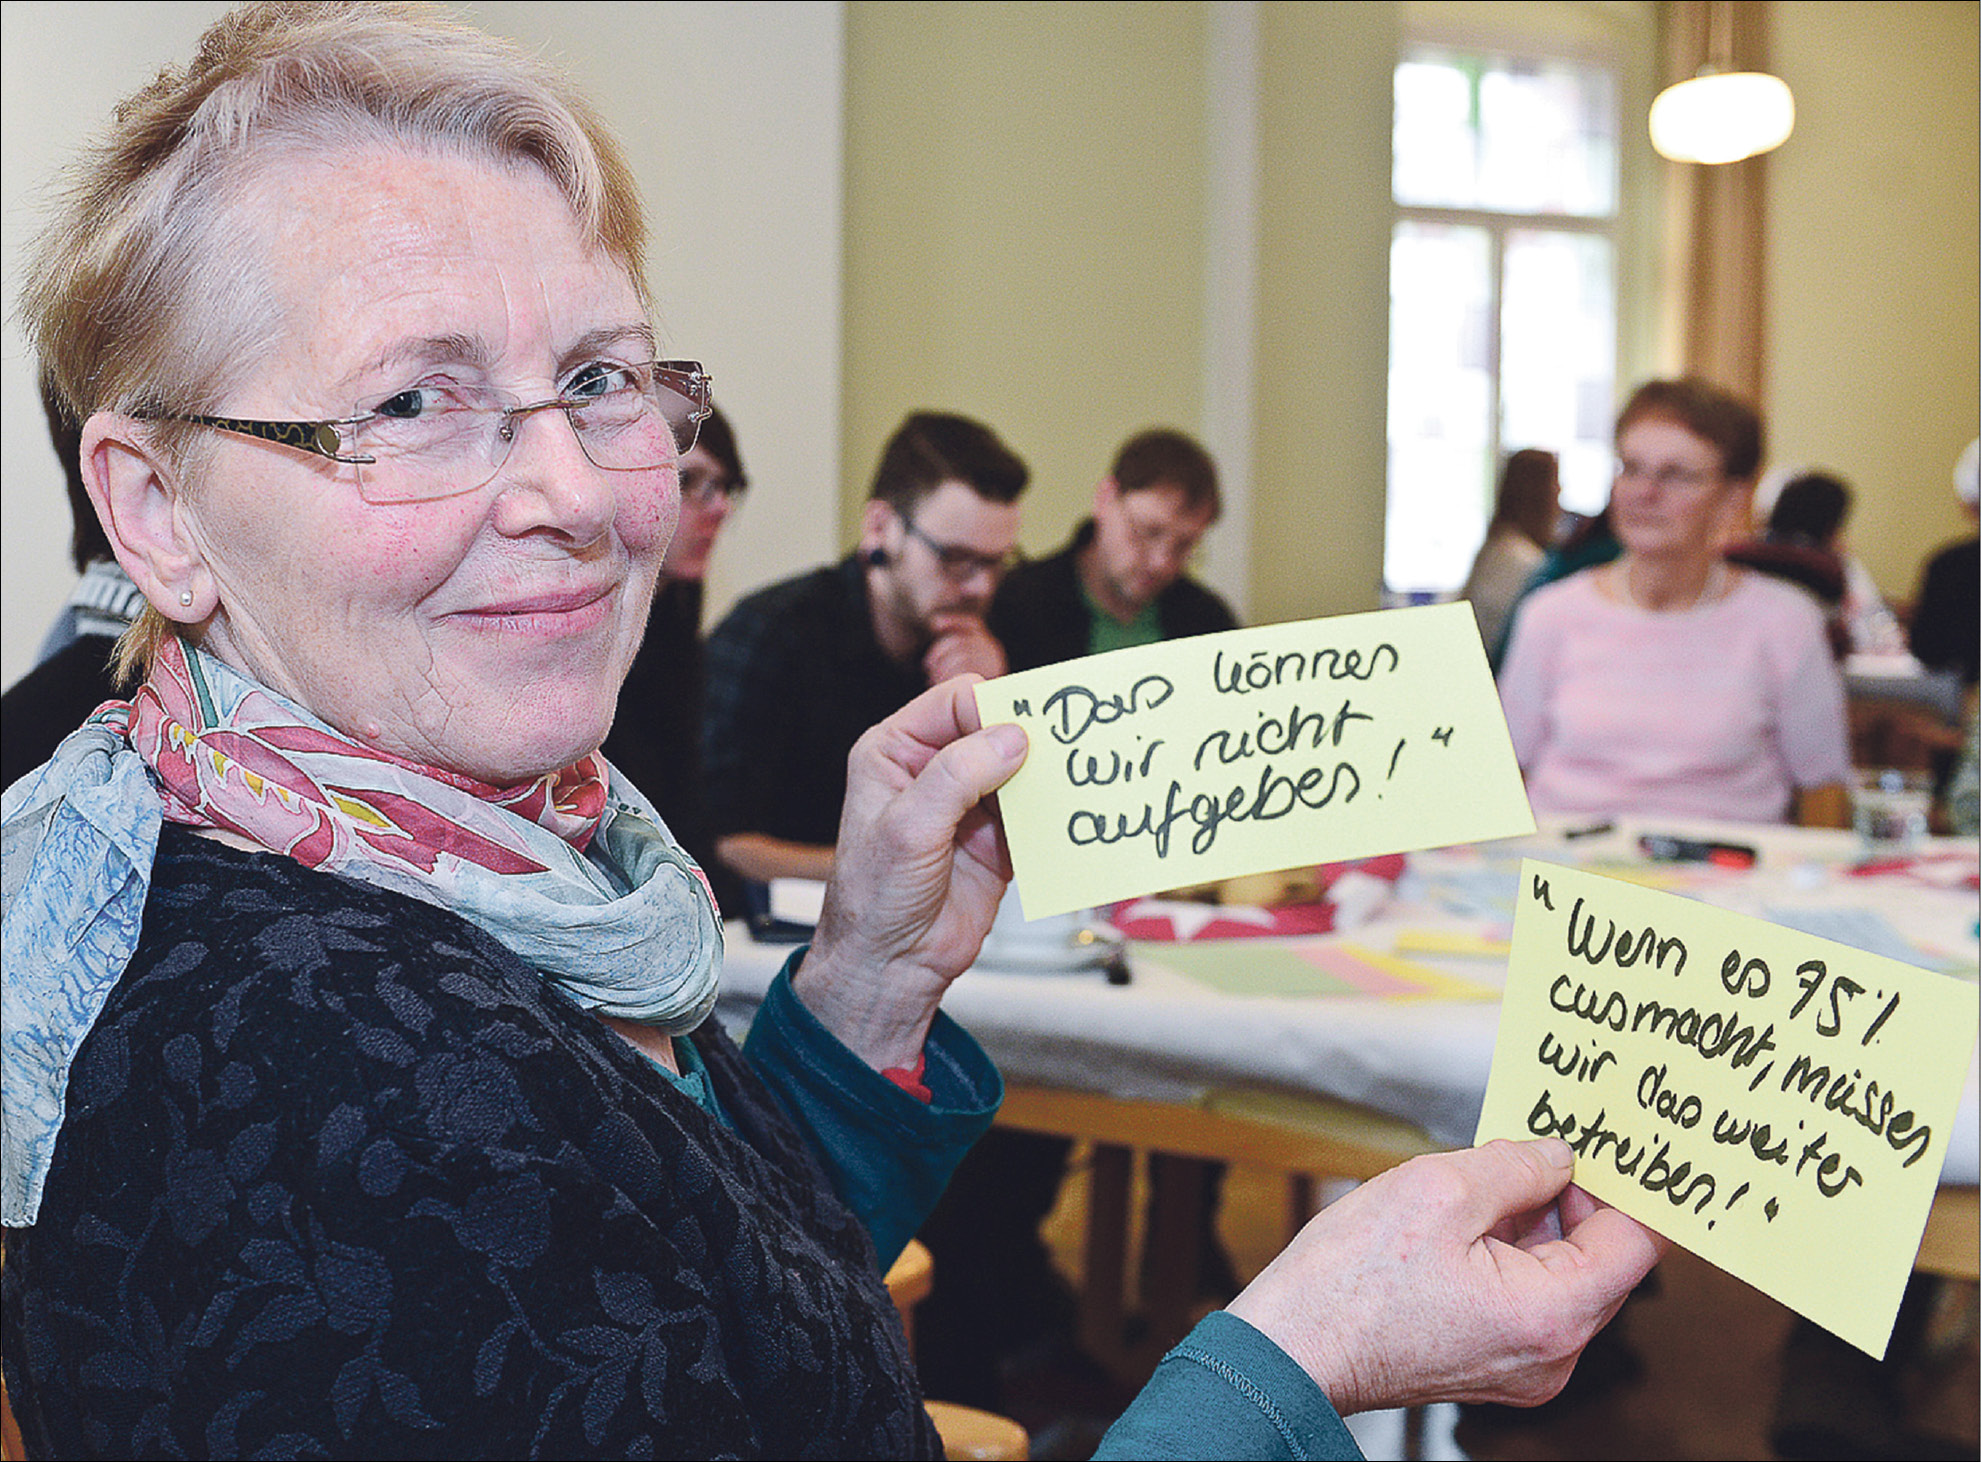 "Das können
wir nicht
aufgeben!"
"Wenn es 75%
ausmacht, müssen
wir das weiter
betreiben!"